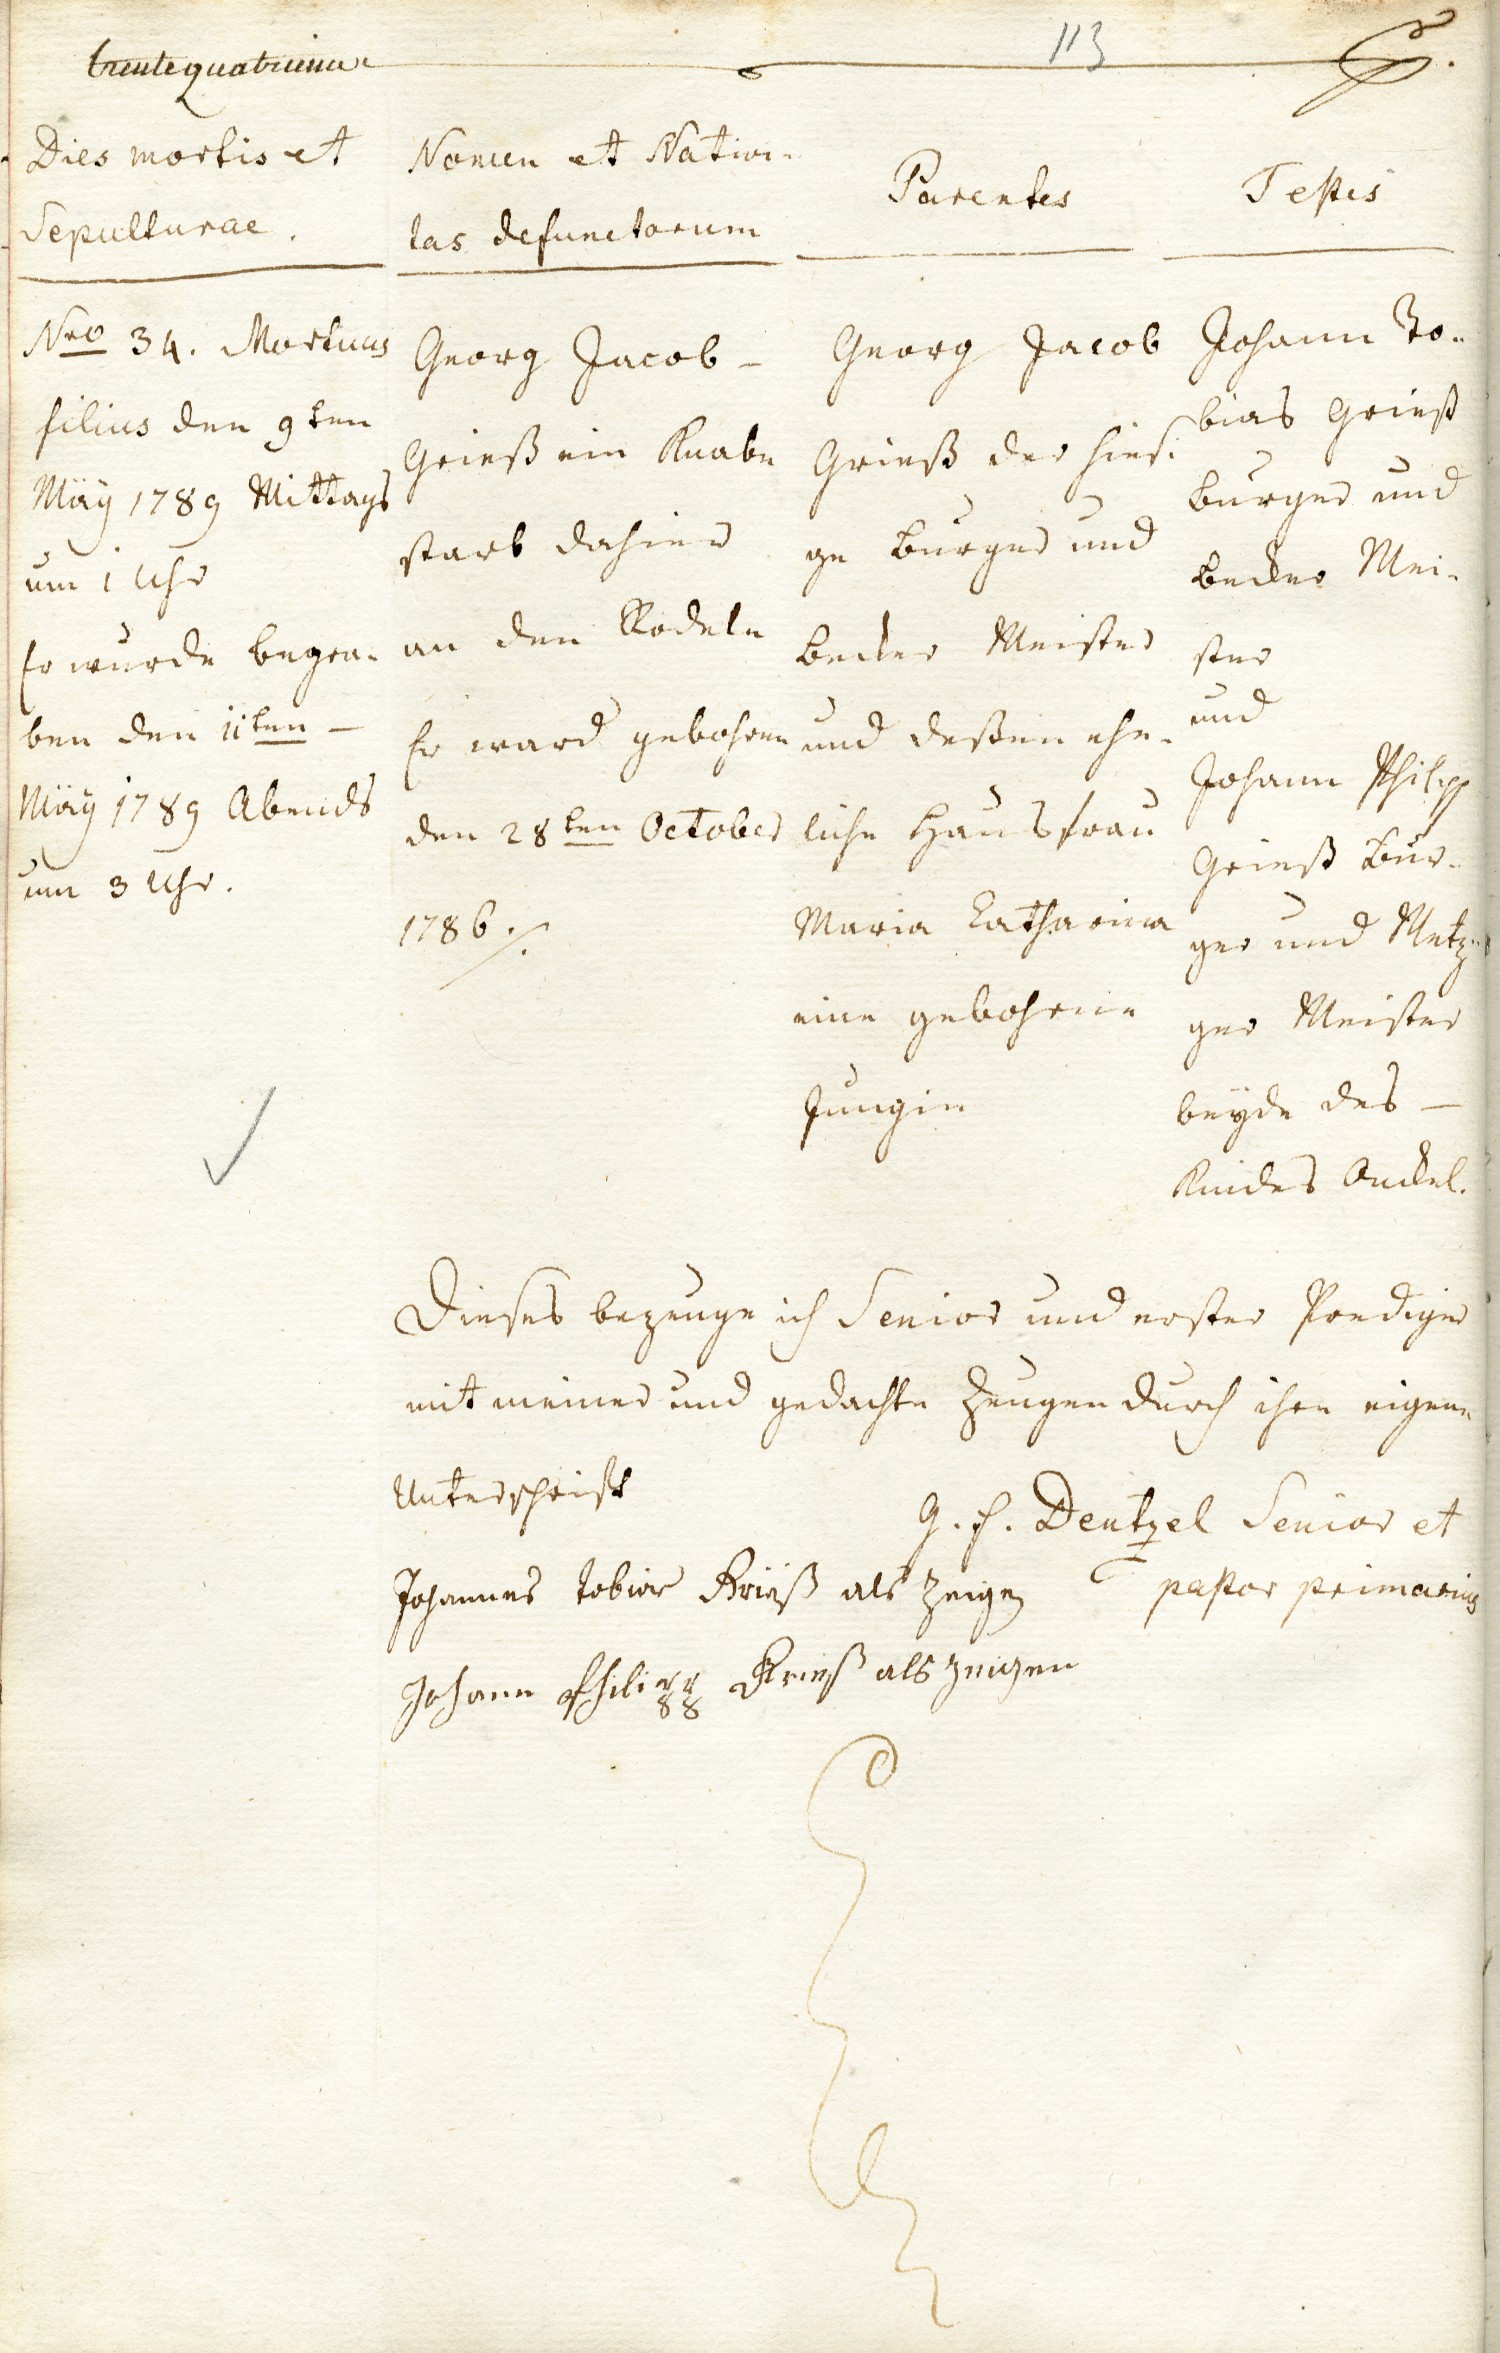 trente quatrieme
113
Dies mortis et
Sepulturae.
Nomen et Nativi-
tas defunctorum
Parentes
Testes
Nro 34. Mortuus
filius den 9ten
Mäÿ 1789 Mittags
um 1 Uhr
Er wurde begra-
ben den 11ten –
Mäÿ 1789 Abends
um 3 Uhr.
Georg Jacob –
Grieß ein Knabe
starb dahier
an den Rodeln
Er ward gebohren
den 28ten October
1786 ./.
Georg Jacob
Grieß der hiesi-
ge Burger und
Becker Meister
und deßen ehe-
liche Hausfrau
Maria Catharina
eine gebohrne
Jungin
Johann To-
bias Grieß
Burger und
Becker Mei-
ster
und
Johann Philipp
Grieß Bur-
ger und Metz-
ger Meister
beÿde des –
Kindes Onckel.
Dieses bezeuge ich Senior und erster Prediger
mit meiner und gedachte Zeugen durch ihre eigene
Unterschrift
G. F. Dentzel Senior et
pastor primarius
Johannes tobias Krieß als zeigen
Johann Philipp Krieß als zeugen